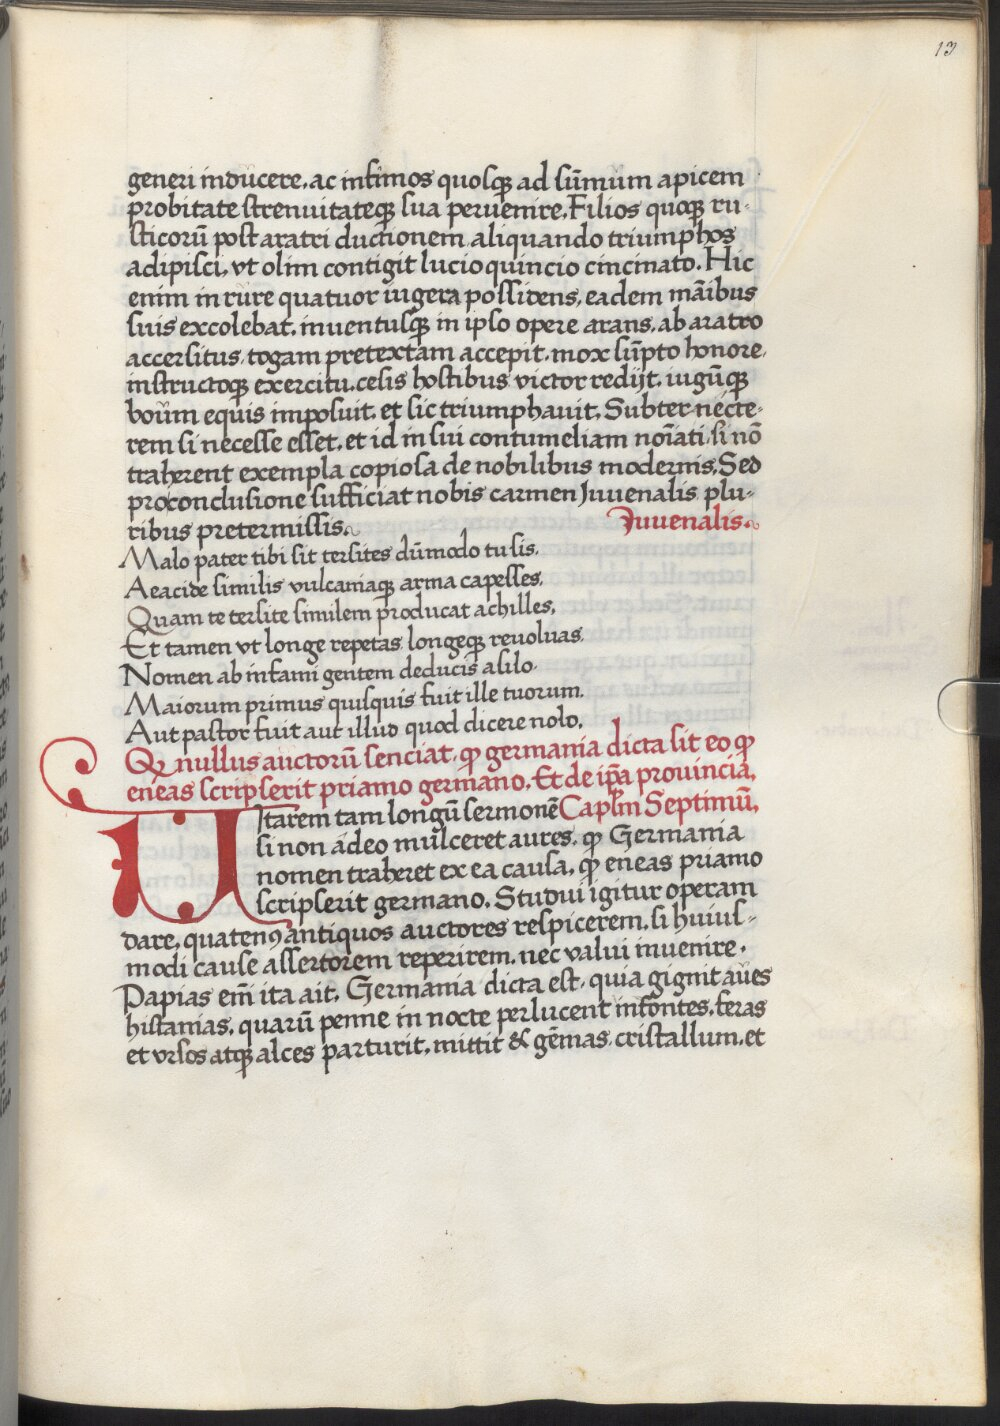 13
generi inducere, ac infimos quosqꝫ ad sūmum apicem
probitate strenuitateqꝫ sua peruenire. Filios quoqꝫ ru-
sticorū post aratri ductionem aliquando triumphos
adipisci, vt olim contigit lucio quincio cincinato. Hic
enim in rure quatuor iugera possidens, eadem māibus
suis excolebat, inuentusqꝫ in ipso opere arans, ab aratro
accersitus, togam pretextam accepit, mox sūpto honore,
instructoqꝫ exercitu, cesis hostibus victor redijt, iugūqꝫ
boum equis imposuit, et sic triumphauit. Subter necte-
rem si necesse esset, et id in sui contumeliam noīati, si nō
traherent exempla copiosa de nobilibus modernis. Sed
pro conclusione sufficiat nobis carmen Juuenalis plu-
ribus pretermissis. Juuenalis.
Malo pater tibi sit tersites dūmodo tu sis.
Aeacide similis vulcaniaqꝫ arma capesses.
Quam te tersite similem producat achilles,
Et tamen vt longe repetas longeqꝫ reuoluas
Nomen ab infami gentem deducis asilo.
Maiorum primus quisquis fuit ille tuorum.
Aut pastor fuit aut illud quod dicere nolo.
Qꝫ nullus auctorū senciat, qꝫ germania dicta sit eo qꝫ
eneas scripserit priamo germano. Et de ip̄a prouincia.
Vtarem tam longū sermonē Cap̄lm Septimū.
si non adeo mulceret aures, qꝫ Germania
nomen traheret ex ea causa, qꝫ eneas priamo
scripserit germano. Studui igitur operam
dare, quatenꝰ antiquos auctores respicerem, si huius-
modi cause assertorem reperirem, nec valui inuenire.
Papias em̄ ita ait. Germania dicta est, quia gignit aues
histanias, quarū penne in nocte perlucent infontes, feras
et vrsos atqꝫ alces parturit, mittit & gēmas, cristallum, et